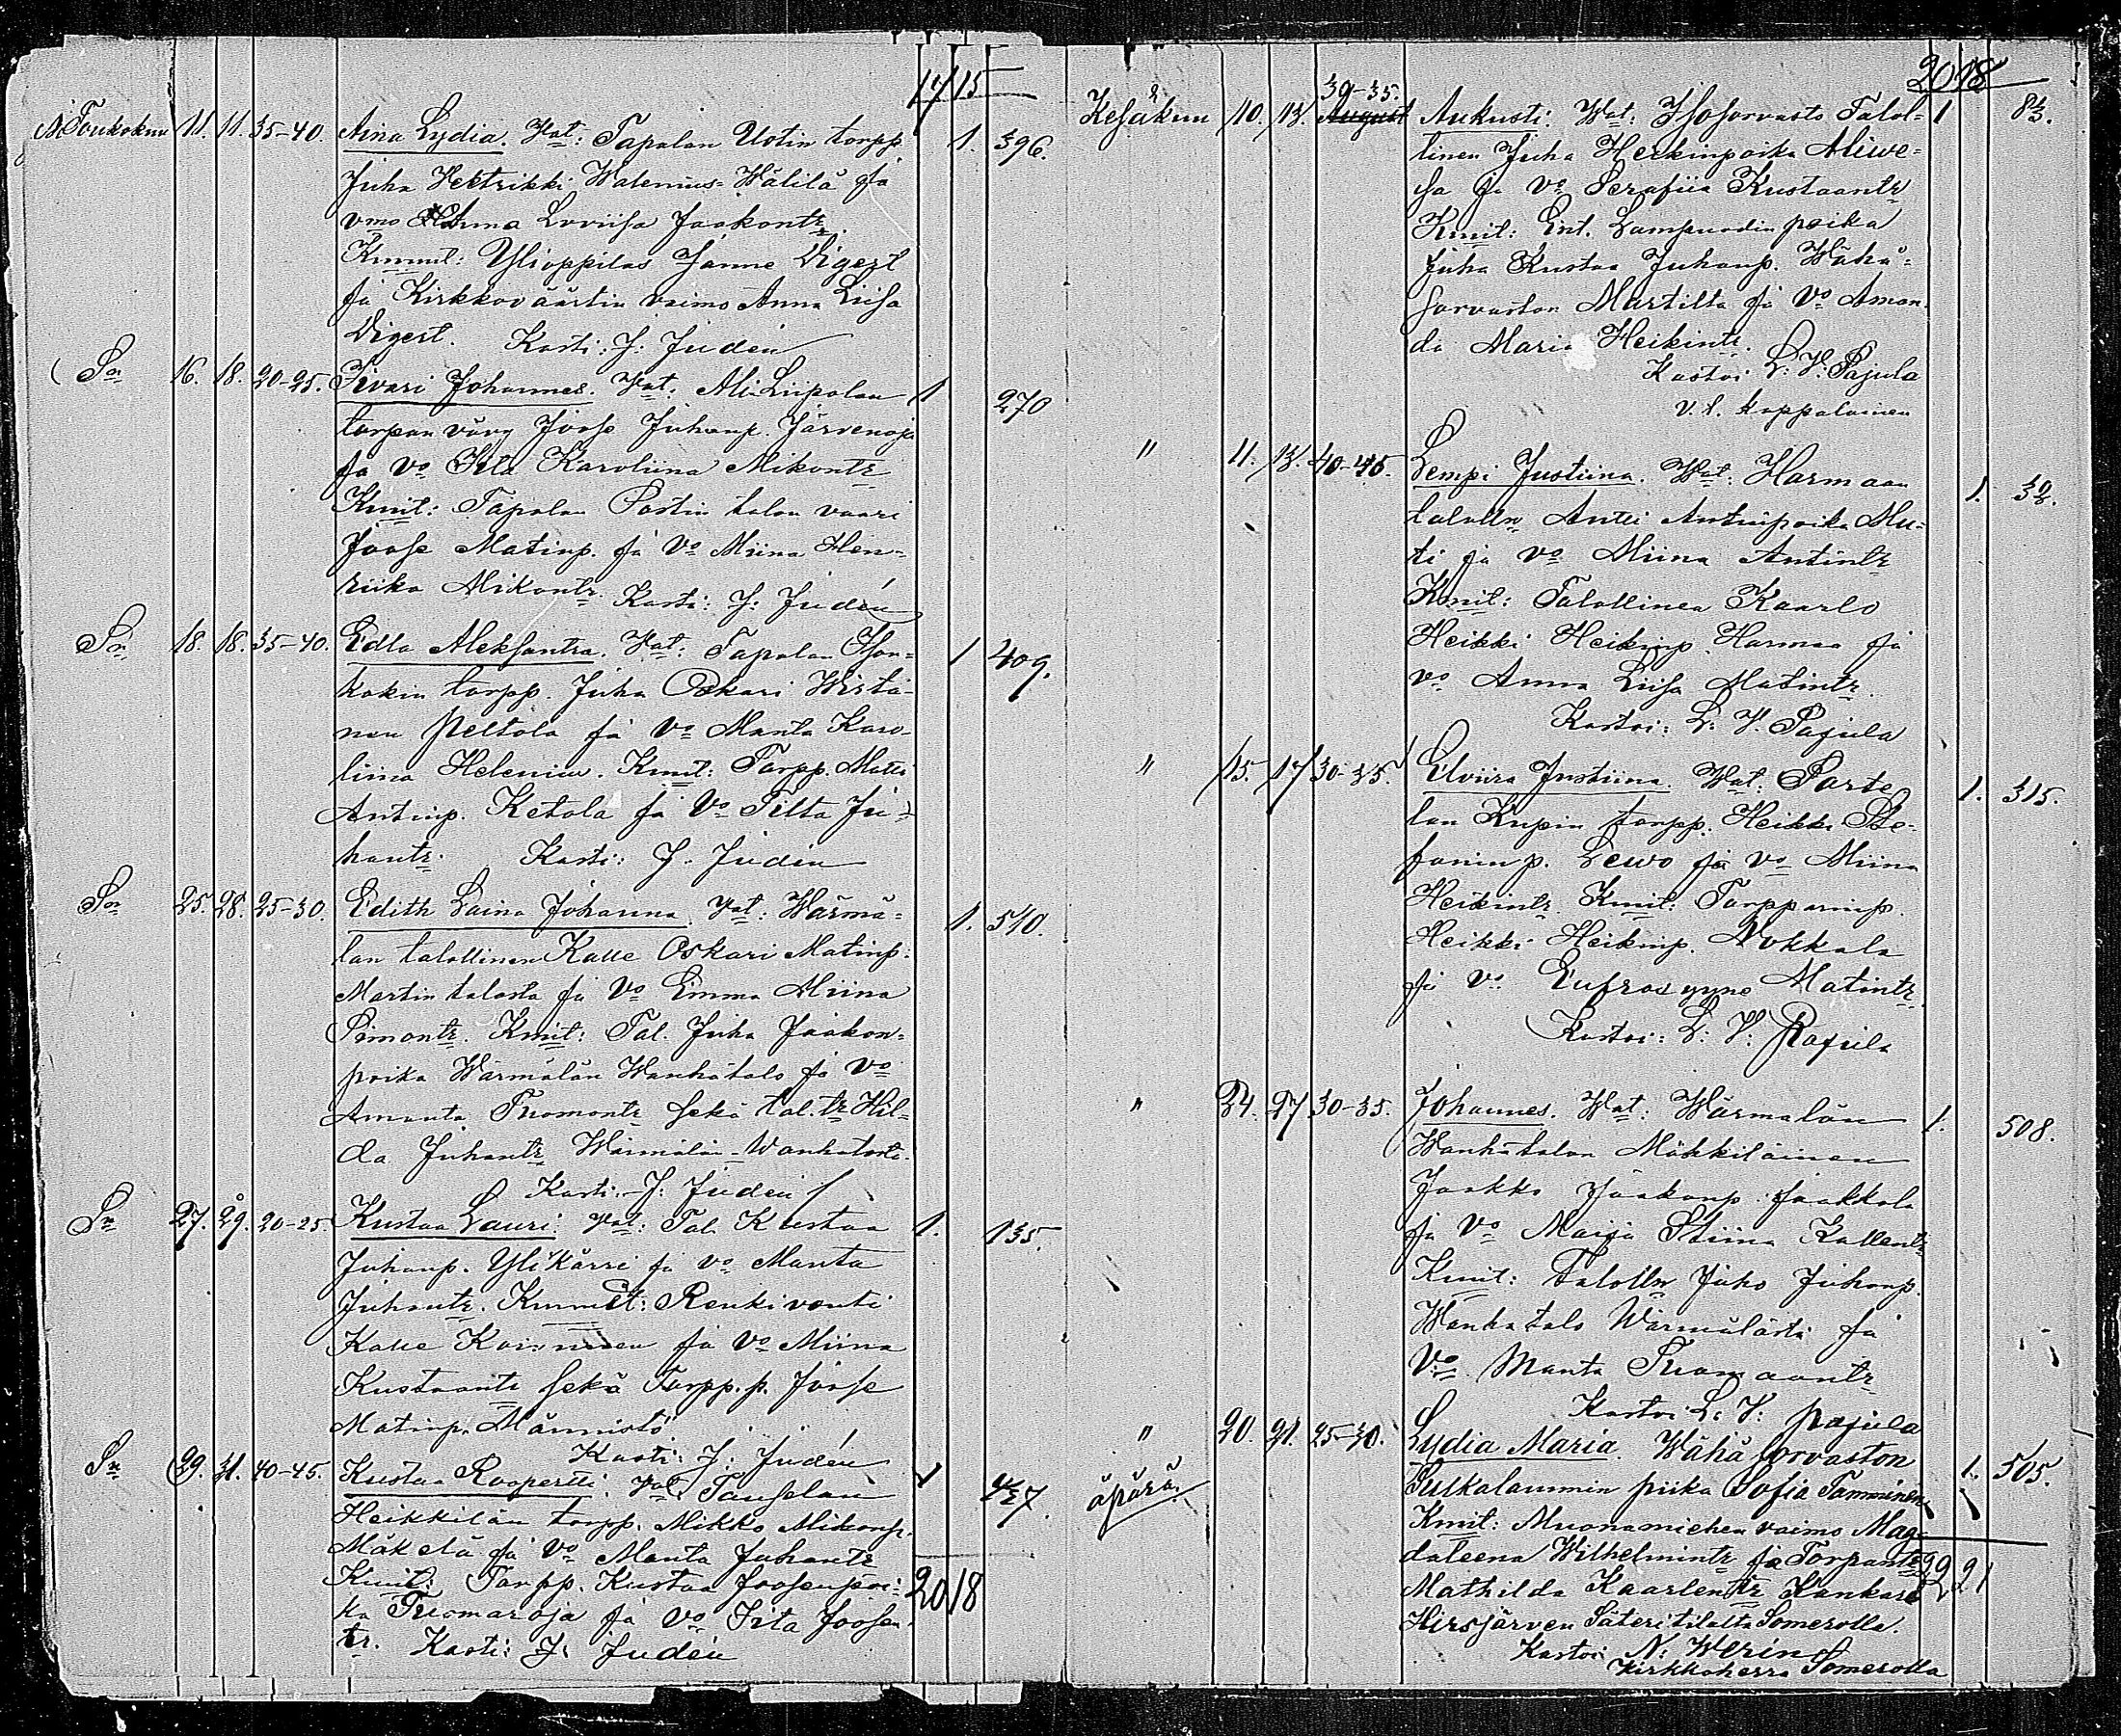 17 15
Toukokuu 11. 11. 35-40. Aina Lydia. Vat: Tapolan Uotin torpp. 1. 396.
Juha Hektrikki Walenius-Wälilä ja
vmo Anna Loviisa Jaakontr.
Kmmit: Ylioppilas Janne Digert
ja Kirkkoväärtin vaimo Anna Liisa
Digert. Kasti: J: Judén
Sn 16. 18. 20-25. Iivari Johannes. Vat: Ali Liipolan 1 270
torpan vävy Joose Juhanp. Järvenoja
ja vo Iita Karoliina Mikontr
Kmit: Tapolan Postin talon vaari
Joose Matinp. ja Vo Miina Hen-
riika Mikontr. Kasti: J: Judén
Sn 18. 18. 35-40. Edla Aleksantra. Vat: Tapolan Ison- 1 409.
kokin torpp. Juha Oskari Wirta-
nen Peltola ja Vo Manta Karo-
liina Helenius. Kmit: Torpp. Matti
Antinp. Ketola ja Vo Tilta Ju-
hantr. Kasti: J. Judén
Sn 25. 28. 25-30. Edith Laina Johanna. Vat: Wärmä- 1. 540.
län talollinen Kalle Oskari Matinp:
Martin talosta ja Vo Emma Miina
Simontr. Kmit: Tal. Juha Jaakon-
poika Wärmälän Wanhatalo ja Vo
Amanta Tuomontr sekä tal. tr Hil-
da Juhantr Wärmälän-Wanhatalo.
Kasti. J: Judén
Sn 27. 29. 20-25 Kustaa Lauri. Vat: Tal. Kustaa 1. 135.
Juhanp. Ylikärri ja vo Manta
Juhantr. Kmmit: Renkivouti
Kalle Koivunen ja Vo Miina
Kustaantr sekä Torpp. p. Joose
Matinp. Männistö
Kasti: J: Judén
Sn 29. 31. 40-45. Kustaa Roopertti. Vat: 1 427.
Heikkilän torpp. Mikko Mikonp.
Mäkelä ja Vo Manta Juhantr
Kmit: Torpp. Kustaa Joosenpoi-
ka Tuomaroja ja Vo Iita Joosen-
tr. Kasti: J: Judén
20 18
20 18
30-35.
Kesäkuu 10. 13. August Aukusti. Wat: Isosorvasto Talol- 1 83.
linen Juha Heikinpoika Aliwe-
sa ja Vo Serafiia Kustaantr
Kmit: Ent. Lampuodin poika
Juha Kustaa Juhanp. Wähä-
sorvaston Martilta ja Vo Aman-
da Maria Heikintr.
Kastoi L: V: Pajula
v. t. kappalainen
" 11. 13. 40-45. Lempi Justiina. Wat: Harmaan 1. 39.
talolln Antti Antinpoika Mu-
ti ja vo Miina Antintr
Kmit: Talollinen Kaarlo
Heikki Heikinp Harmaa ja
vo Anna Liisa Matintr.
Kastoi: L: V. Pajula
" 15. 17 30-35. Elviira Justiina. Wat: 1. 315.
lan Krupin torpp. Heikki Ste-
faninp. Lewo ja vo Miina
Heikintr. Kmit: Torpparinp.
Heikki Heikinp. Nokkala
ja vo Eufrosyyne Matintr.
Kastoi: L: V: Pajula
" 24. 27. 30-35. Johannes. Wat: Wärmälän 1. 508.
Wanhatalon Mäkkiläinen
Jaakko Jaakonp. Jaakkola
ja Vo Maija Stiina Kallentr
Kmit: talolln Juho Juhanp.
Wanhatalo Wärmälästä ja
Vo Manta Tuomaantr
Kastoi L: V: Pajula
" 20. 21. 25-30. Lydia Maria. Wähäsorvaston
äpärä. Sulkalammin piika Sofia Tamminen 1. 505.
Kmit: Muonamiehen vaimo Mag-
daleena Wilhelmintr ja Torpantr
Mathilda Kaarlentr Kankare 22 21
Hirsjärven Säteritilalta Somerolla.
Kastoi N: Werin
Kirkkoherra Somerolla